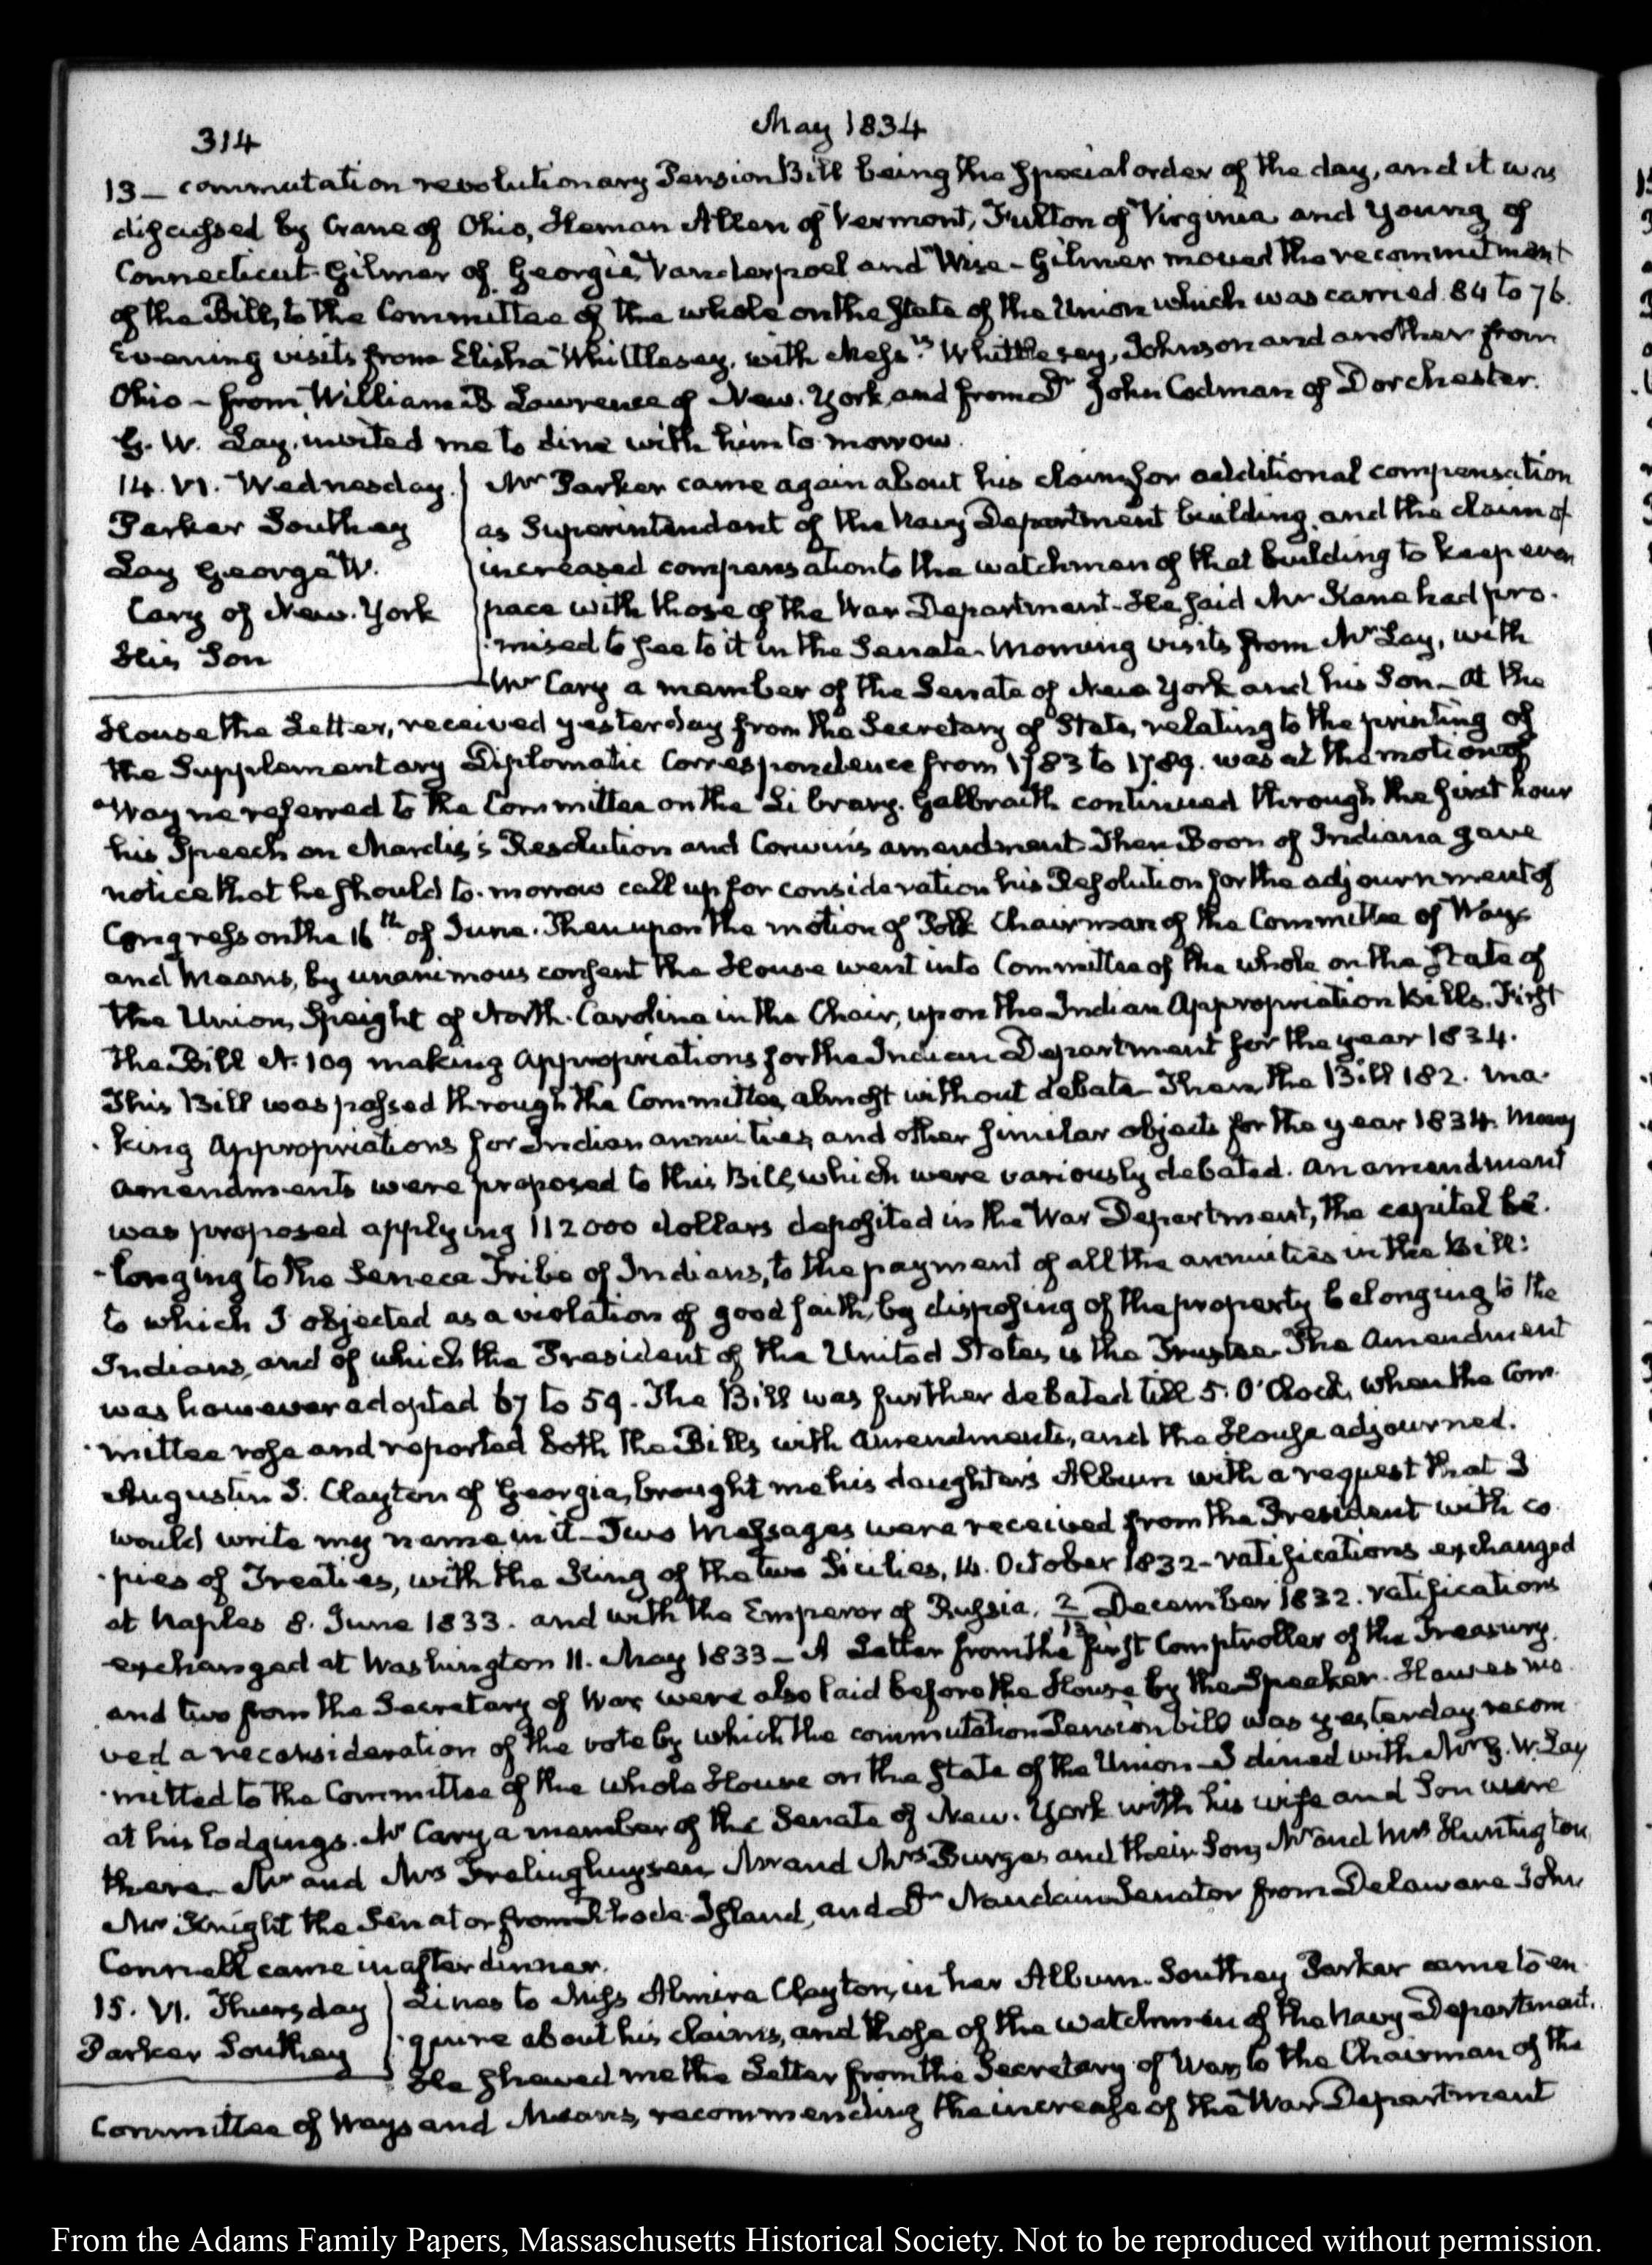 314
May 1834
13 – commutation revolutionary Pension Bill being the special order of the day, and it was
discussed by Crane of Ohio, Heman Allen of Vermont, Fulton of Virginia and Young of
Connecticut. Gilmer of Georgia, Vanderpoel and Wise – Gilmer moved the recommitment
of the Bill, to the Committee of the whole on the State of the Union which was carried 84 to 76.
Evening visits from Elisha Whittlesey, with Mess.rs Whittlesey, Johnson and another from
Ohio – from William B Lawrence of New-York, and from Dr John Codman of Dorchester.
G. W. Lay, invited me to dine with him to-morrow.
14. VI. Wednesday.
Parker Southey
Lay George W.
Cary of New-York
His Son
Mr Parker came again about his claim, for additional compensation
as Superintendent of the Navy Department building, and the claim of
increased compensation to the watchmen of that building to keep even
pace with those of the War Department – He said Mr Kane had pro-
-mised to see to it in the Senate. Morning visits from Mr Lay, with
Mr Cary a member of the Senate of New York and his Son – At the
House the Letter, received yesterday from the Secretary of State, relating to the printing of
the Supplementary Diplomatic Correspondence from 1783 to 1789. was at the motion of
Wayne referred to the Committee on the Library. Galbraith continued through the first hour
his Speech on Mardis's Resolution and Corwin's amendment. Then Boon of Indiana gave
notice that he should to-morrow call up for consideration his Resolution for the adjournment of
Congress on the 16th of June. Then upon the motion of Polk Chairman of the Committee of Ways
and Means, by unanimous consent the House went into Committee of the whole on the State of
the Union, Speight of North-Carolina in the Chair, upon the Indian Appropriation Bills. First
the Bill N. 109 making appropriations for the Indian Department for the year 1834.
This Bill was passed through the Committee, almost without debate. Then the Bill 182. ma-
-king Appropriations for Indian annuities, and other similar objects for the year 1834. Many
amendments were proposed to this Bill, which were variously debated. An amendment
was proposed applying 112000 dollars deposited in the War Department, the capital be-
-longing to the Seneca Tribe of Indians, to the payment of all the annuities in the Bill:
to which I objected as a violation of good faith, by disposing of the property belonging to the
Indians, and of which the President of the United States, is the Trustee. The Amendment
was however adopted 67 to 59. The Bill was further debated till 5. O'Clock, when the Com-
-mittee rose and reported both the Bills with amendments, and the House adjourned.
Augustin S. Clayton of Georgia, brought me his daughter's Album with a request that I
would write my name in it – Two Messages were received from the President with co-
-pies of Treaties, with the King of the two Sicilies, 14. October 1832 – ratifications exchanged
at Naples 8. June 1833. and with the Emperor of Russia, 6/18 December 1832. ratifications
exchanged at Washington 11. May 1833 – A Letter from the first Comptroller of the Treasury.
and two from the Secretary of War, were also laid before the House by the Speaker. Hawes mo-
ved a reconsideration of the vote by which the commutation Pension bill was yesterday recom-
-mitted to the Committee of the whole House on the State of the Union – I dined with Mr G. W. Lay
at his lodgings. Mr Cary, a member of the Senate of New-York with his wife and Son were
there – Mr and Mrs Frelinghuysen, Mr and Mrs Burges and their Son, Mr and Mrs Huntington,
Mr Knight the Senator from Rhode-Island, and Dr Naudain Senator from Delaware John
Connell came in after dinner.
15. VI. Thursday
Parker Southey
Lines to Miss Almira Clayton, in her Album. Southey Parker came to en-
-quire about his claims, and those of the watchmen of the Navy Department.
He shewed me the Letter from the Secretary of War, to the Chairman of the
Committee of Ways and Means, recommending the increase of the War Department
From the Adams Family Papers, Massaschusetts Historical Society. Not to be reproduced without permission.